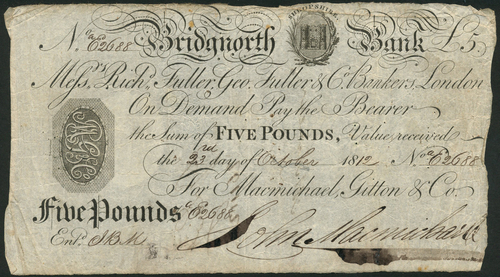 SHROPSHIRE
No. a/c E2688 Bridgnorth Bank £5
Messrs. Richd. Fuller, Geo. Fuller & Co. Bankers, London
On Demand Pay the Bearer
the Sum of FIVE POUNDS, Value received
the 23rd day of October 1812 No. a/c E2688
For Macmichael, Gitton & Co.
Five Pounds a/c E2688
Entd. John Macmichael